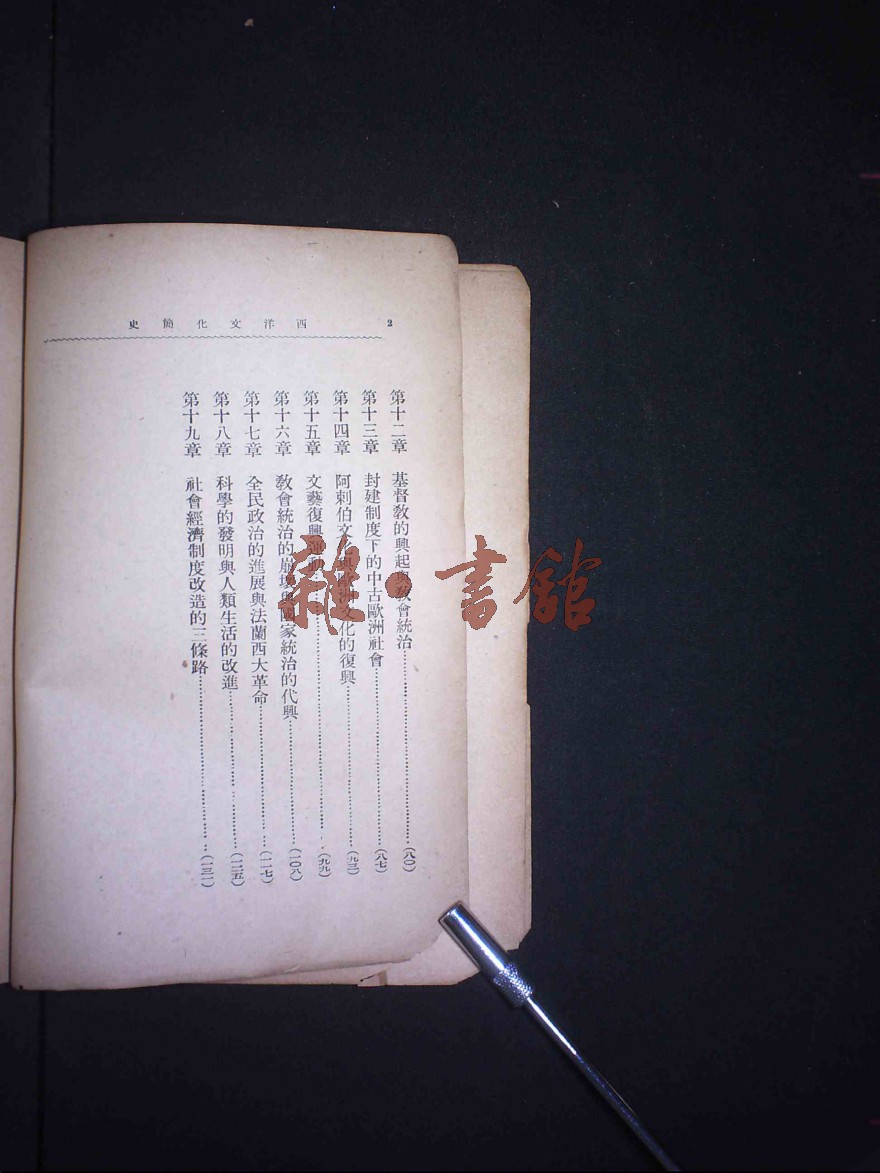 西洋文化簡史 2
第十二章 基督教的興起與教會統治……(八〇)
第十三章 封建制度下的中古歐洲社會……(八七)
第十四章 阿剌伯文化與歐洲文化的復興……(九三)
第十五章 文藝復興運動……(九九)
第十六章 教會統治的崩壞與國家統治的代興……(一〇八)
第十七章 全民政治的進展與法蘭西大革命……(一一七)
第十八章 科學的發明與人類生活的改進……(一二五)
第十九章 社會經濟制度改造的三條路……(一三一)
雜·書館